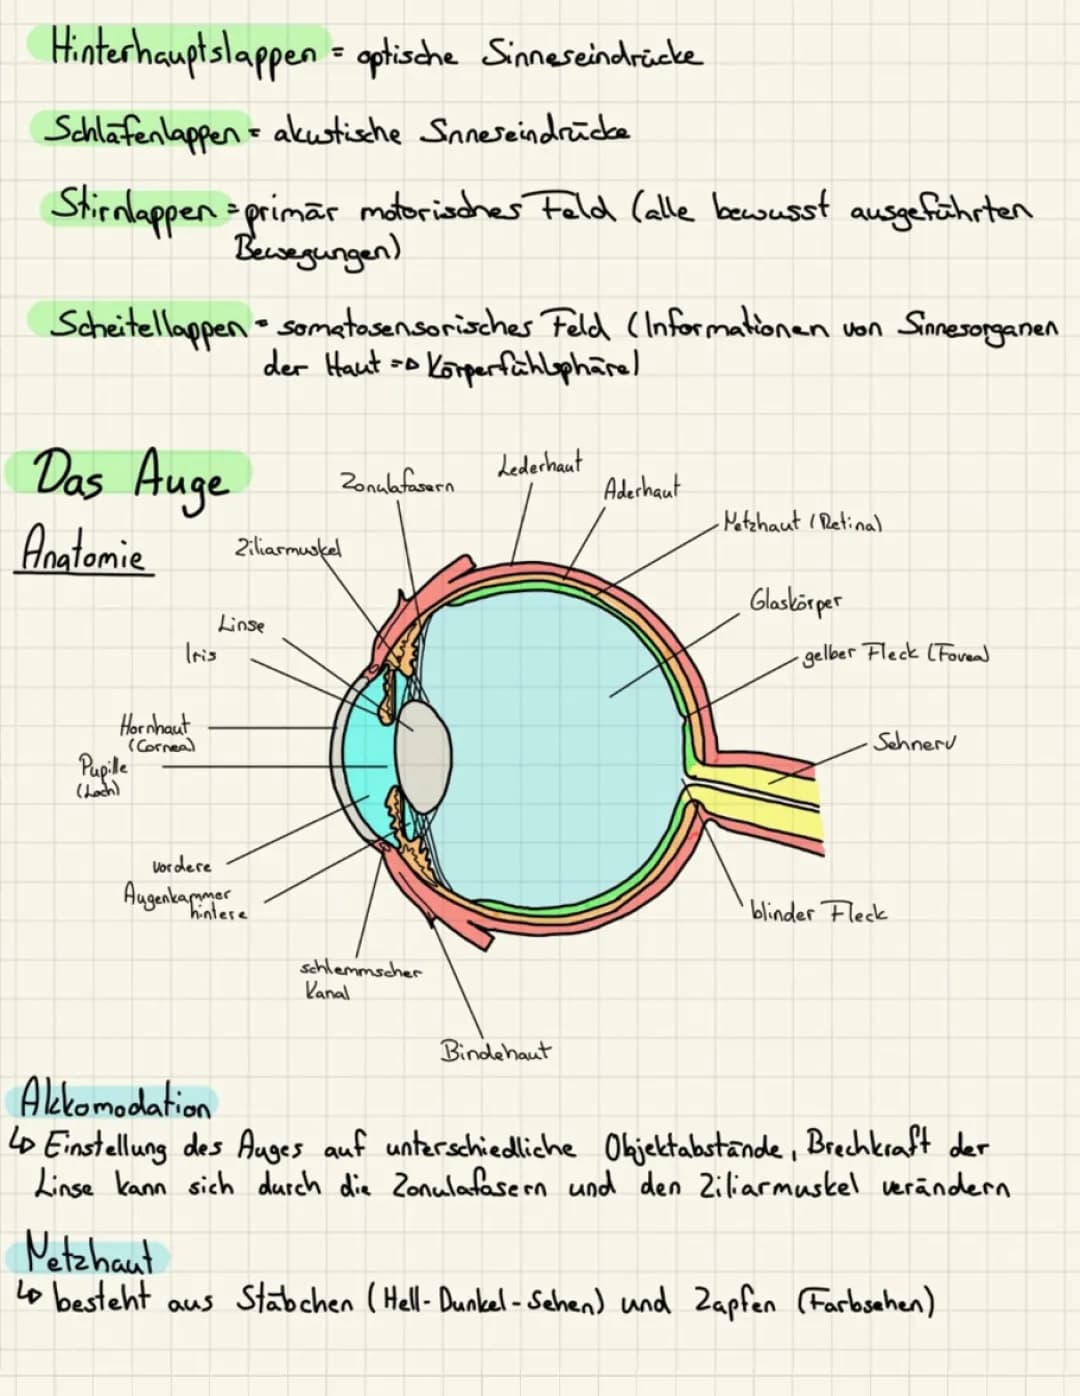 Hinterhauptslappen = optische Sinneseindrücke
Schläfenlappen = akustische Sinneseindrücke
Stirnlappen = primär motorisches Feld (alle bewusst ausgeführten
Bewegungen)
Scheitellappen = somatosensorisches Feld (Informationen von Sinnesorganen
der Haut => Körperfühlsphäre)
Das Auge
Anatomie
Lederhaut
Zonulafasern
Aderhaut
Netzhaut (Retina)
Ziliarmuskel
Glaskörper
Linse
Iris
gelber Fleck (Fovea)
Hornhaut
(Cornea)
Sehnerv
Pupille
(Loch)
vordere
Augenkammer
hintere
blinder Fleck
schlemmscher
Kanal
Bindehaut
Akkomodation
↳ Einstellung des Auges auf unterschiedliche Objektabstände, Brechkraft der
Linse kann sich durch die Zonulafasern und den Ziliarmuskel verändern
Netzhaut
↳ besteht aus Stäbchen (Hell-Dunkel-Sehen) und Zapfen (Farbsehen)